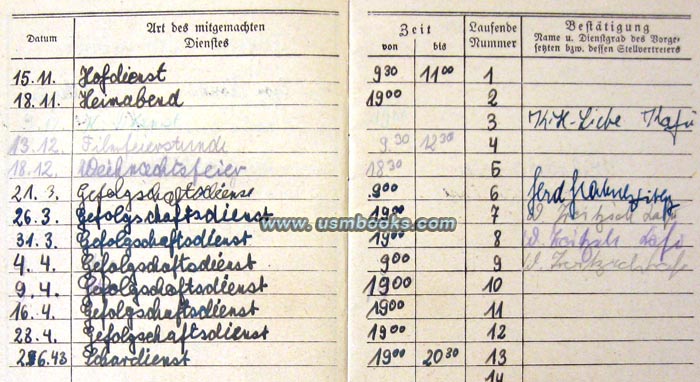 Datum Art des mitgemachten Dienstes Zeit von bis Laufende Nummer Bestätigung
Name u. Dienstgrad des Vorge-
setzten bzw. dessen Stellvertreters
15.11. Hofdienst 9 30 11 00 1
18.11. Heimabend 19 00 2
3
13.12. Filmfeierstunde 9.30 12 30 4
18.12. Weihnachtsfeier 18 30 5
21.3. Gefolgschaftsdienst 9 00 6
26.3. Gefolgschaftsdienst 19 00 7
31.3. Gefolgschaftsdienst 19 00 8
4.4. Gefolgschaftsdienst 9 00 9
9.4. Gefolgschaftsdienst 19 00 10
16.4. Gefolgschaftsdienst 19 00 11
28.4. Gefolgschaftsdienst 19 00 12
6.43 Schardienst 19 00 20 30 13
14
www.usmbooks.com